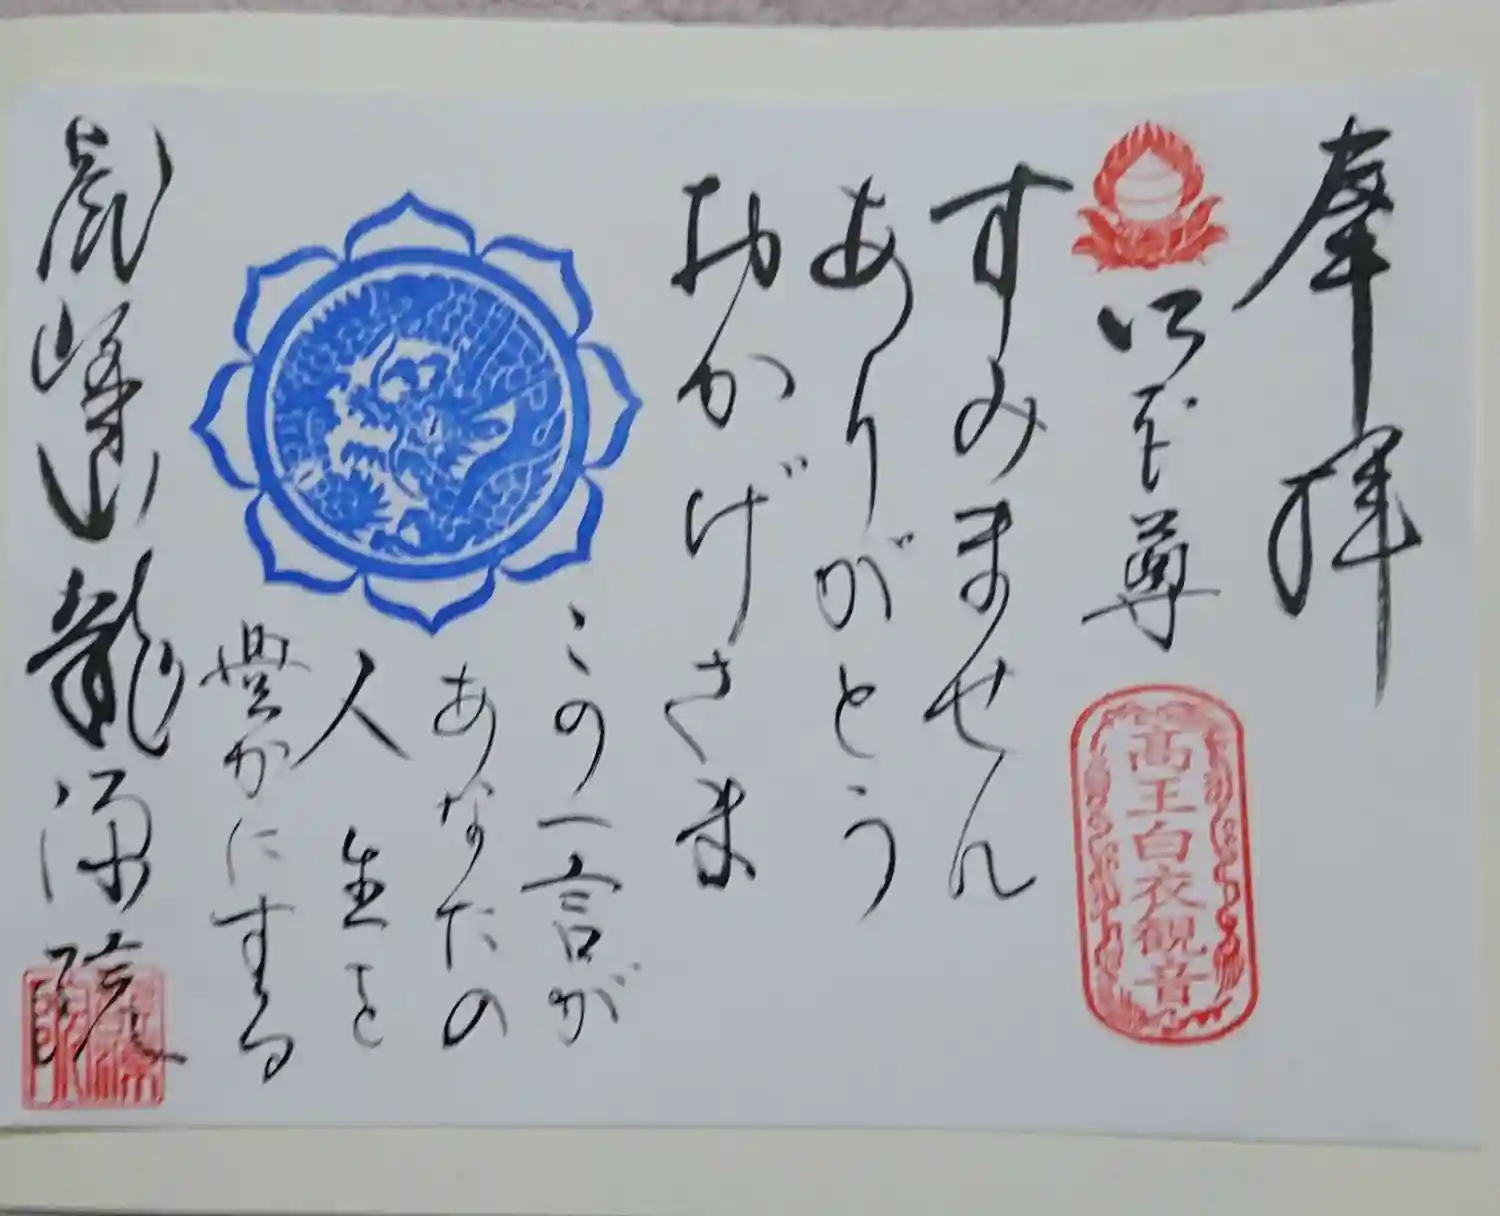 奉拝
御本尊
高王白衣観音
すみません
ありがとう
おかげさま
この一言が
あなたの
人生を
豊かにする
山龍源院